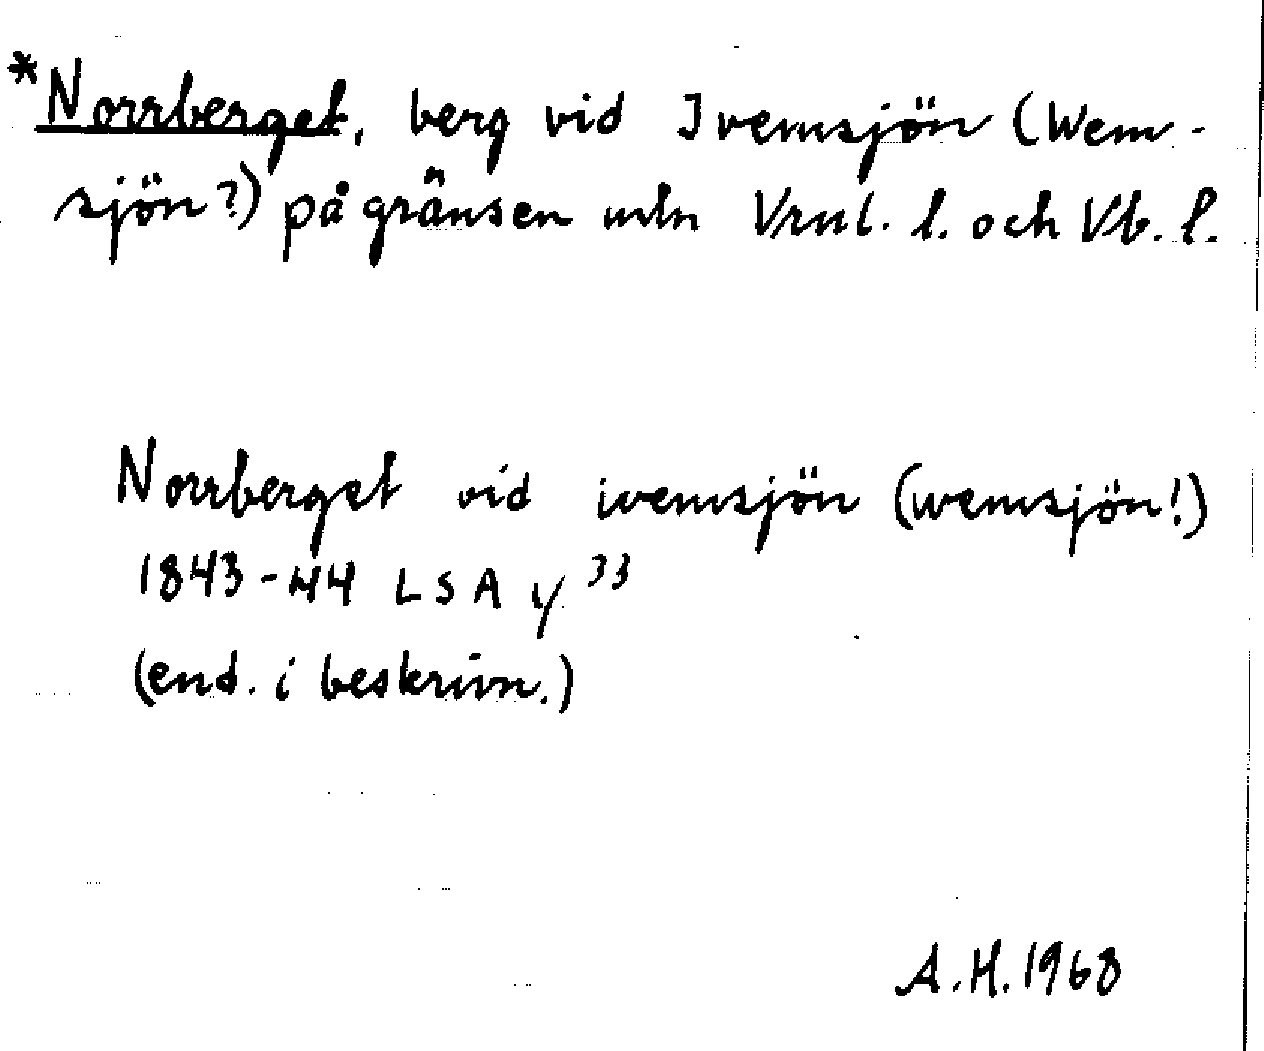 *Norrberget, berg vid Ivemsjön (Wem-
sjön?) på gränsen mln Vrml. l. och Vb. l.
Norrberget vid ivemsjön (wemsjön!)
1843-44 LSA Y 33
(end. i beskrivn.)
A.H. 1968